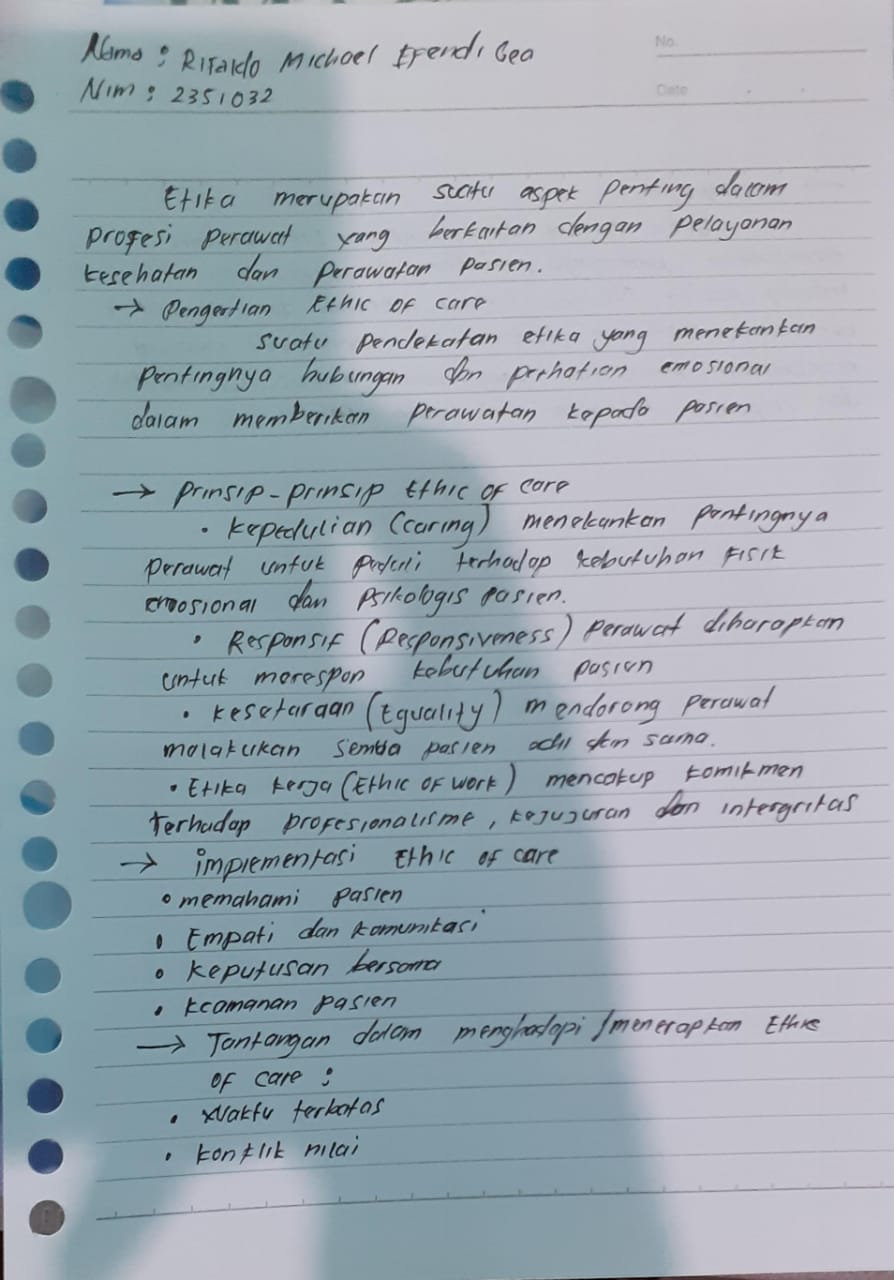 Nama : Rifaldo Michael Efendi Gea
No.
Nim : 2351032
Date
Etika merupakan suatu aspek penting dalam
profesi perawat yang berkaitan dengan pelayanan
kesehatan dan perawatan pasien.
→ Pengertian Ethic of care
suatu pendekatan etika yang menekankan
pentingnya hubungan dan perhatian emosional
dalam memberikan perawatan kepada pasien
→ Prinsip-prinsip Ethic of care
• Kepedulian (caring) menekankan pentingnya
perawat untuk peduli terhadap kebutuhan fisik
emosional dan psikologis pasien.
• Responsif (Responsiveness) perawat diharapkan
untuk merespon kebutuhan pasien
• kesetaraan (Equality) mendorong perawat
melakukan semua pasien adil dan sama.
• Etika kerja (Ethic of work) mencakup komikmen
terhadap profesionalisme, kejujuran dan intergritas
→ implementasi Ethic of care
• memahami pasien
• Empati dan komunikasi
• keputusan bersama
• keamanan pasien
→ Tantangan dalam menghadapi /menerapkan Ethic
of care :
• Waktu terbatas
• konflik nilai